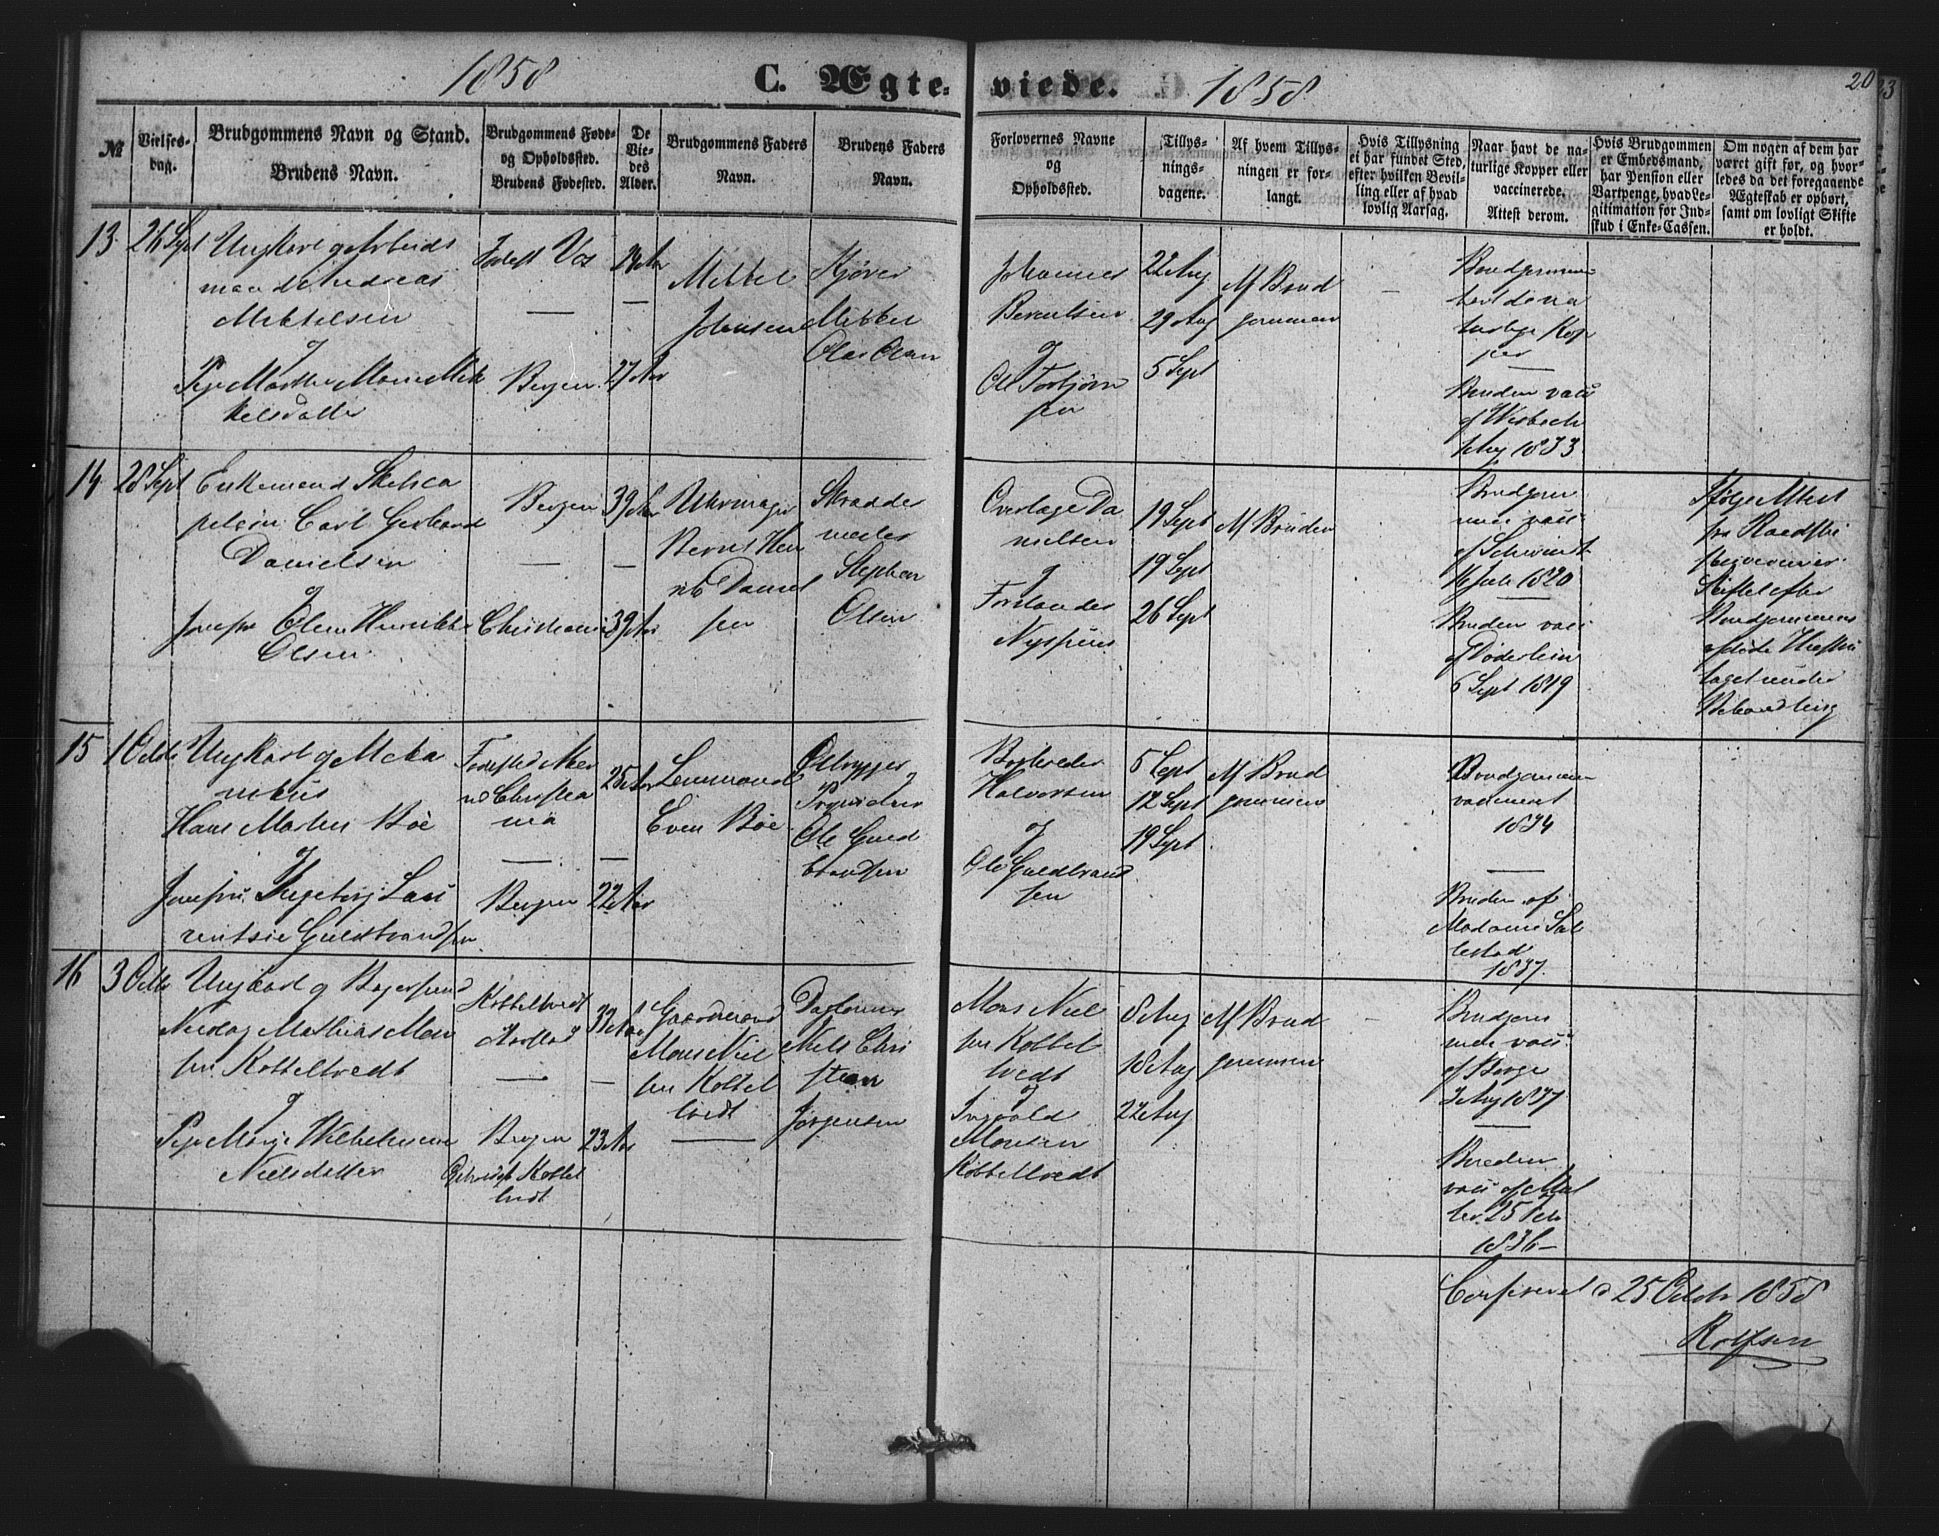 1858
C. Ægte-
viede.
1858
20
№
Vielses-
dag.
Brudgommens Navn og Stand.
Brudens Navn.
Brudgommens Føde-
og Opholdssted.
Brudens Fødested.
De
Vie-
des
Alder.
Brudgommens Faders
Navn.
Brudens Faders
Navn.
Forlovernes Navne
og
Opholdssted.
Tillys-
nings-
dagene.
Af hvem Tillys-
ningen er for-
langt.
Hvis Tillysning
ei har fundet Sted,
efter hvilken Bevil-
ling eller af hvad
lovlig Aarsag.
Naar havt de na-
turlige Kopper eller
vaccinerede.
Attest derom.
Hvis Brudgommen
er Embedsmand,
har Pension eller
Vartpenge, hvad Le-
gitimation for Ind-
skud i Enke-Cassen.
Om nogen af dem har
været gift før, og hvor-
ledes da det foregaaende
Ægteskab er ophørt,
samt om lovligt Skifte
er holdt.
13
26 Sept
Ungkarl og Arbeids
mand Andreas
Mikkelsen
og
Pige Marthe Marie Mik
kelsdatter
Fødest Vos
Bergen
27 Aar
Mikkel
Johnsen
Mikkel
Olai Olsen
Johannes
Berentsen
og
Ole Torbjørn
sen
22 Aug
29 Aug
5 Sept
Af Brud
gommen
Brudgommen
havt de na
turlige Kop
per
Bruden vacc
af Wisbech
Aug 1833
14
28 Sept
Enkemand
Carl Gerhard
Danielsen
og
Jomfru Oline Henrikke
Olsen
Bergen
Christiania
39 Aar
39 Aar
Uhrmager
Bernt Hen
rik Daniel
sen
Skrædder
mester
Stephen
Olsen
Overlæge Da
nielsen
og
Forstander
19 Sept
19 Sept
26 Sept
Af Bruden
Brudgom
men vacc
af Schwindt
Juli 1820
Bruden vacc
af Døderlein
6 Sept 1819
Ifølge Attest
fra
Skiftet efter
Brudgommens
afdøde Hustru
taget under
Behandling
15
1 Octbr
Ungkarl og Mecha
nikus
Hans Morten Bøe
og
Jomfru Ingeborg Lau
rentsie Guldbrandsen
Fødested Aker
v Christia
nia
Bergen
25 Aar
22 Aar
Lensmand
Even Bøe
Ølbrygger
Ole Guld
brandsen
Halvorsen
og
Ole Guldbrand
sen
5 Sept
12 Sept
19 Sept
Af Brud
gommen
Brudgommen
vaccineret
1834
Bruden af
Madame Sal
1837
16
3 Octbr
Ungkarl og Bagersvend
Nicolay Mathias Mon
sen Kobbeltvedt
og
Pige Marie Wilhelmine
Nielsdatter
Kobbeltvedt
Bergen
Kobbel
tvedt
23 Aar
Gaardmand
Mons Niel
sen Kobbel
tvedt
Niels Chri
stian
Jørgensen
Mons Niel
sen Kobbel
tvedt
og
Ingvald
Monsen
Kobbeltvedt
8 Aug
18 Aug
22 Aug
Af Brud
gommen
Brudgom
men vacc
af Berge
Aug 1837
Bruden
vacc af
25
1836
Confereret d 25 Octbr 1858
Rolfsen